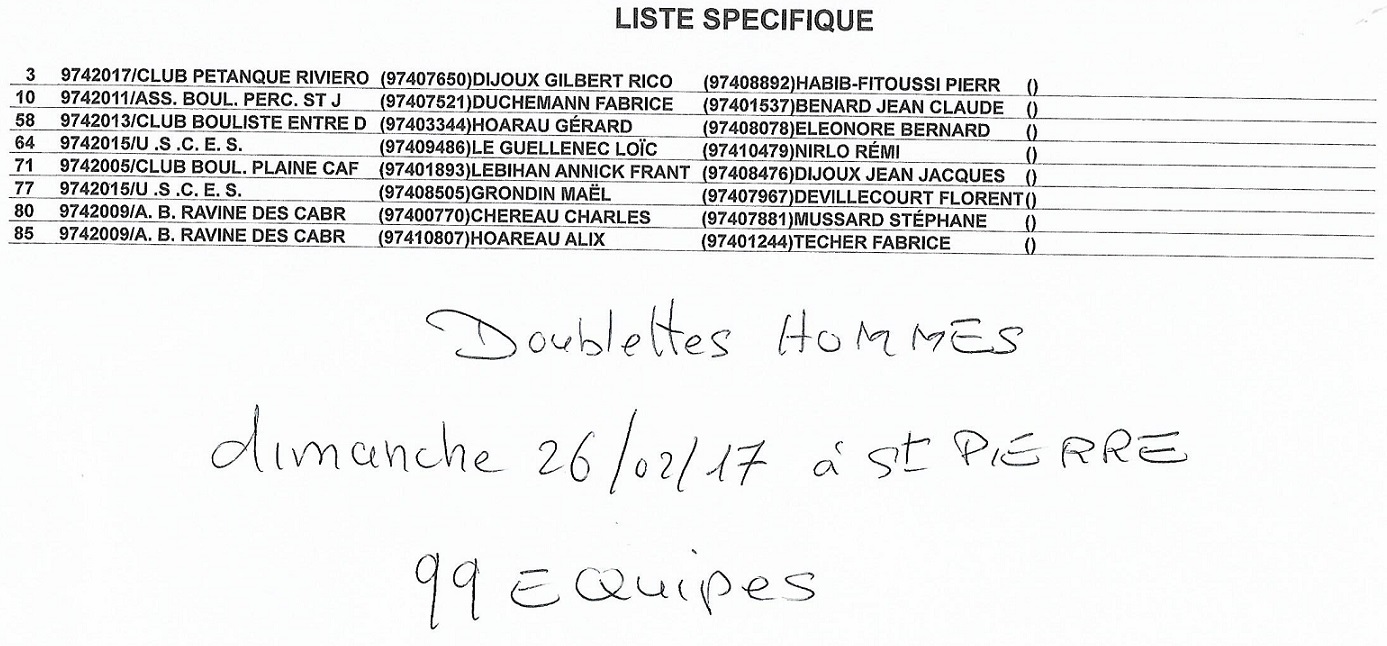 LISTE SPECIFIQUE
3 9742017/CLUB PETANQUE RIVIERO (97407650)DIJOUX GILBERT RICO (97408892)HABIB-FITOUSSI PIERR ()
10 9742011/ASS. BOUL. PERC. ST J (97407521)DUCHEMANN FABRICE (97401537)BENARD JEAN CLAUDE ()
58 9742013/CLUB BOULISTE ENTRE D (97403344)HOARAU GÉRARD (97408078)ELEONORE BERNARD ()
64 9742015/U .S .C. E. S. (97409486)LE GUELLENEC LOÏC (97410479)NIRLO RÉMI ()
71 9742005/CLUB BOUL. PLAINE CAF (97401893)LEBIHAN ANNICK FRANT (97408476)DIJOUX JEAN JACQUES ()
77 9742015/U .S .C. E. S. (97408505)GRONDIN MAËL (97407967)DEVILLECOURT FLORENT()
80 9742009/A. B. RAVINE DES CABR (97400770)CHEREAU CHARLES (97407881)MUSSARD STÉPHANE ()
85 9742009/A. B. RAVINE DES CABR (97410807)HOAREAU ALIX (97401244)TECHER FABRICE ()
Doublettes HOMMES
dimanche 26/02/17 à St PIERRE
99 EQuipes